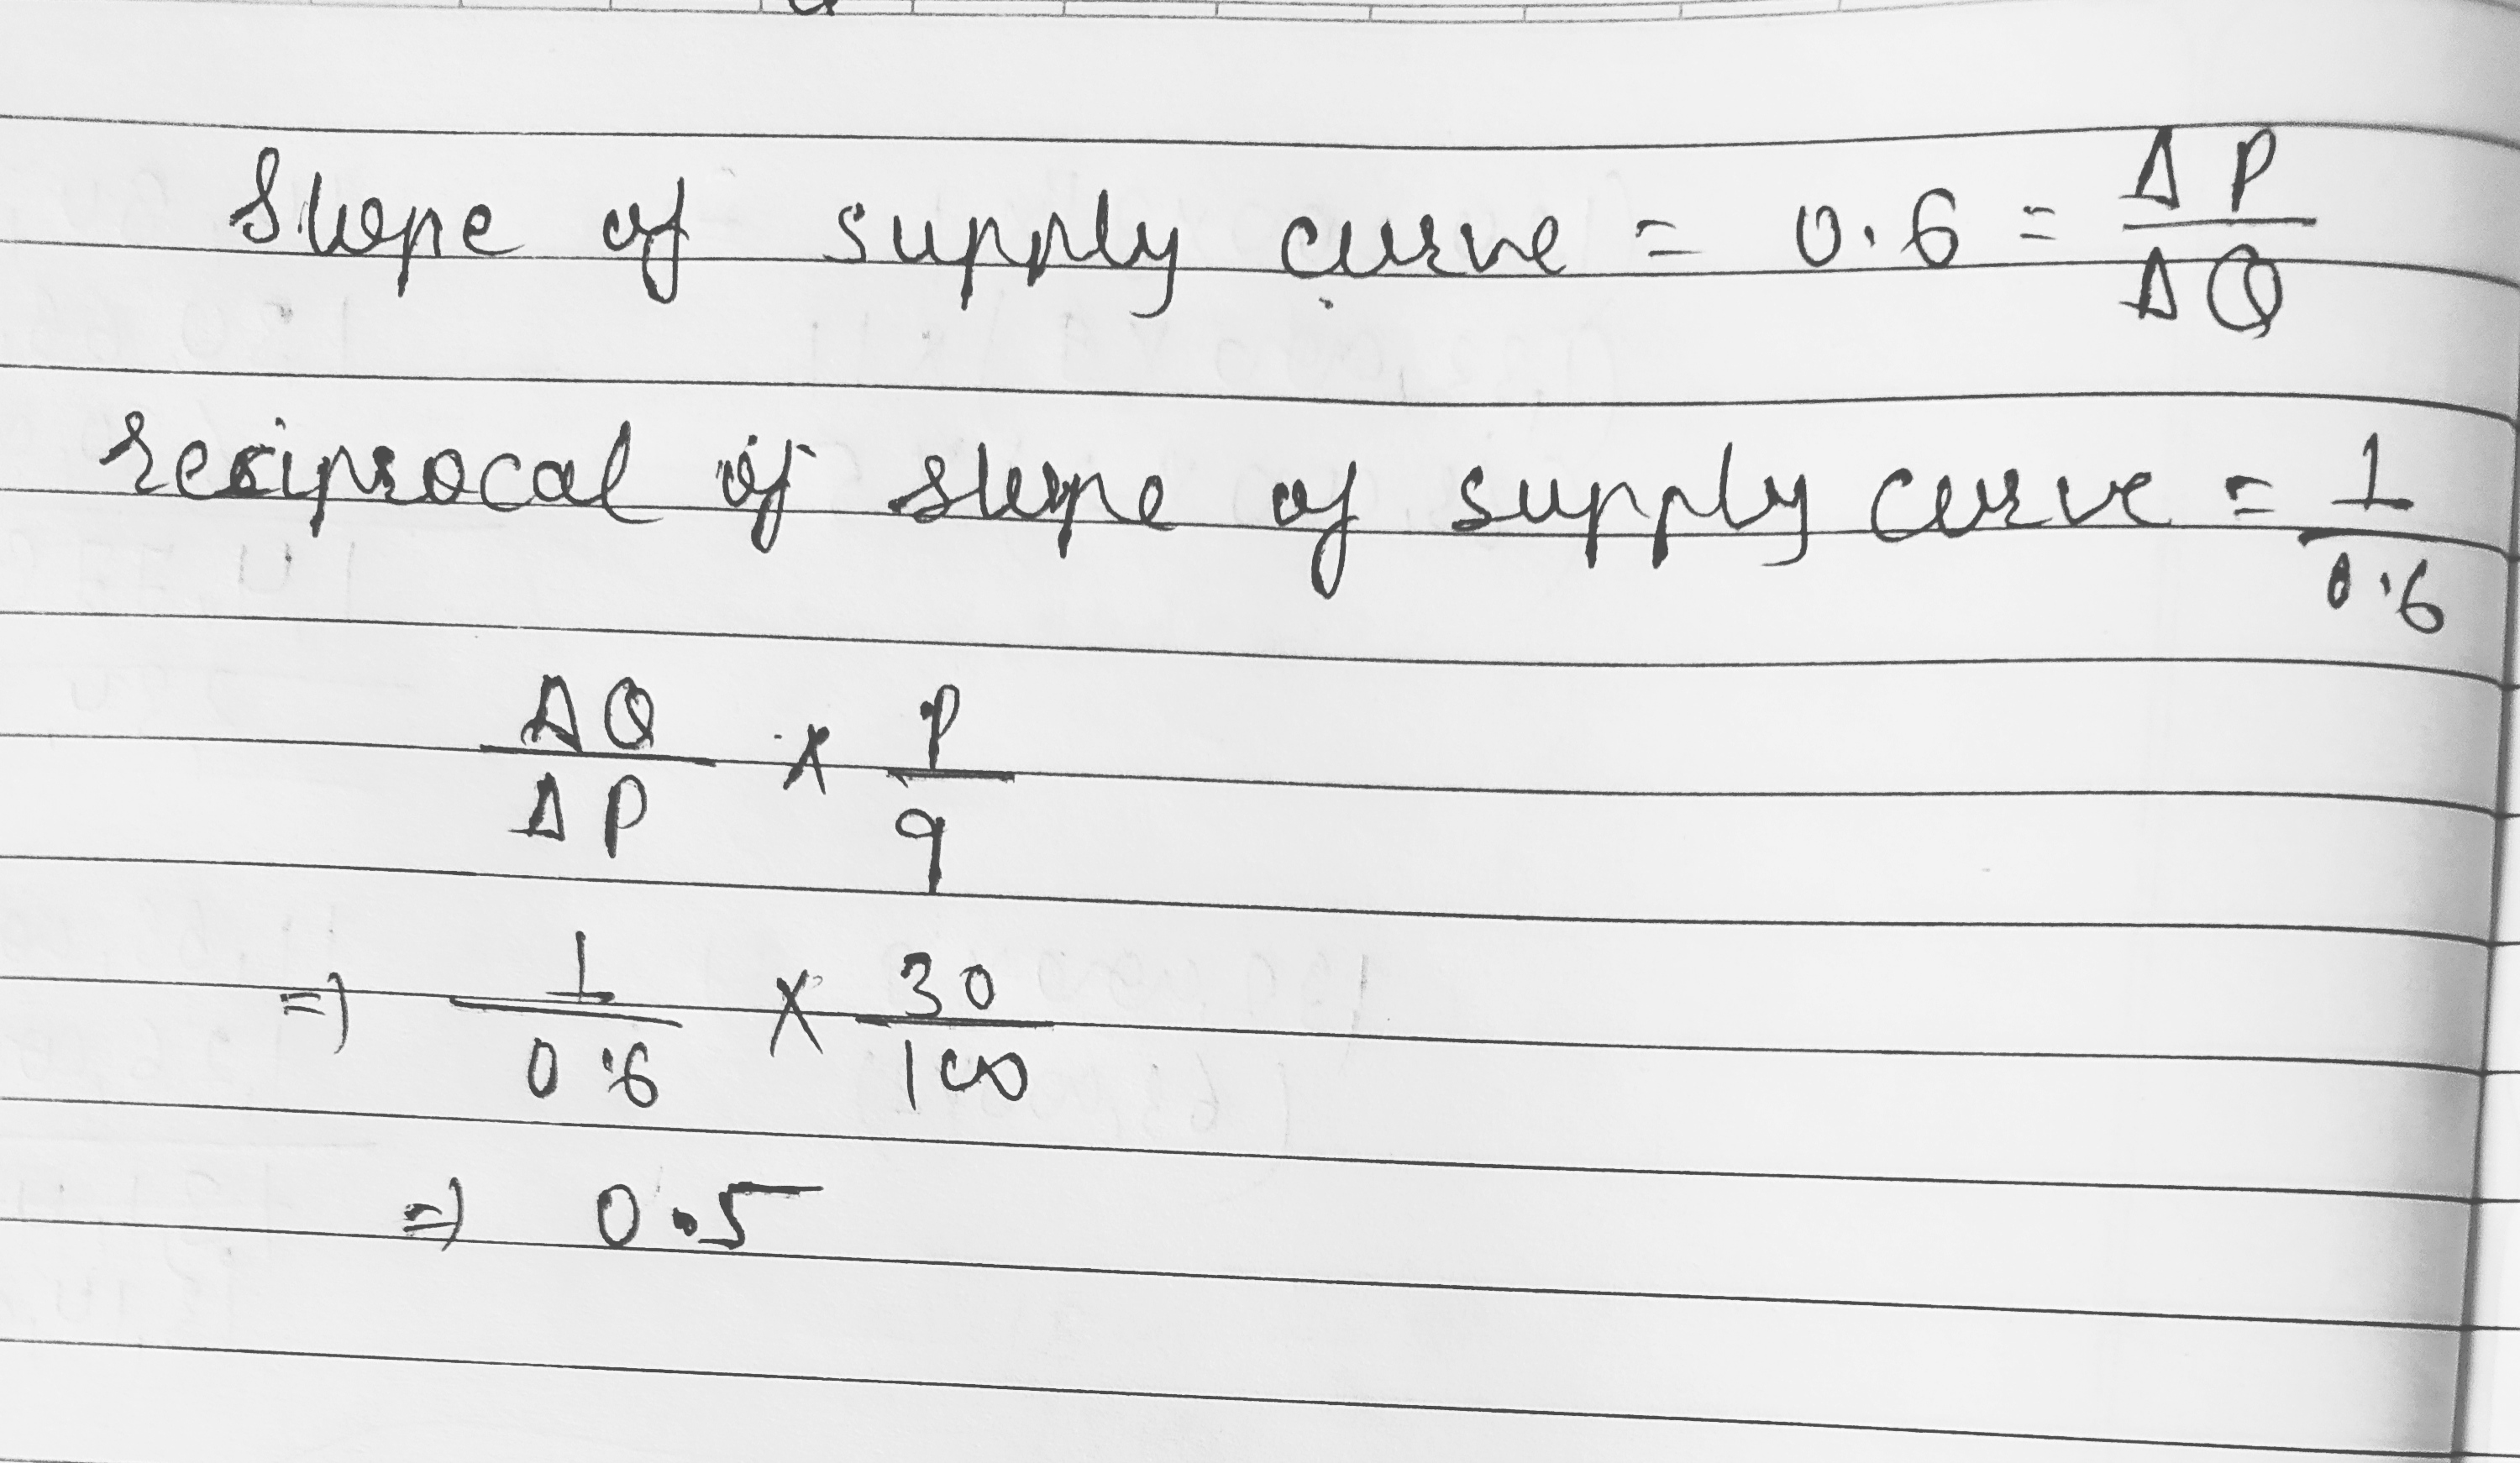 Slope of supply curve = 0.6 = ΔP/ΔQ
resiprocal of slope of supply curve = 1/0.6
ΔQ/ΔP × P/q
⇒ 1/0.6 × 30/100
⇒ 0.5